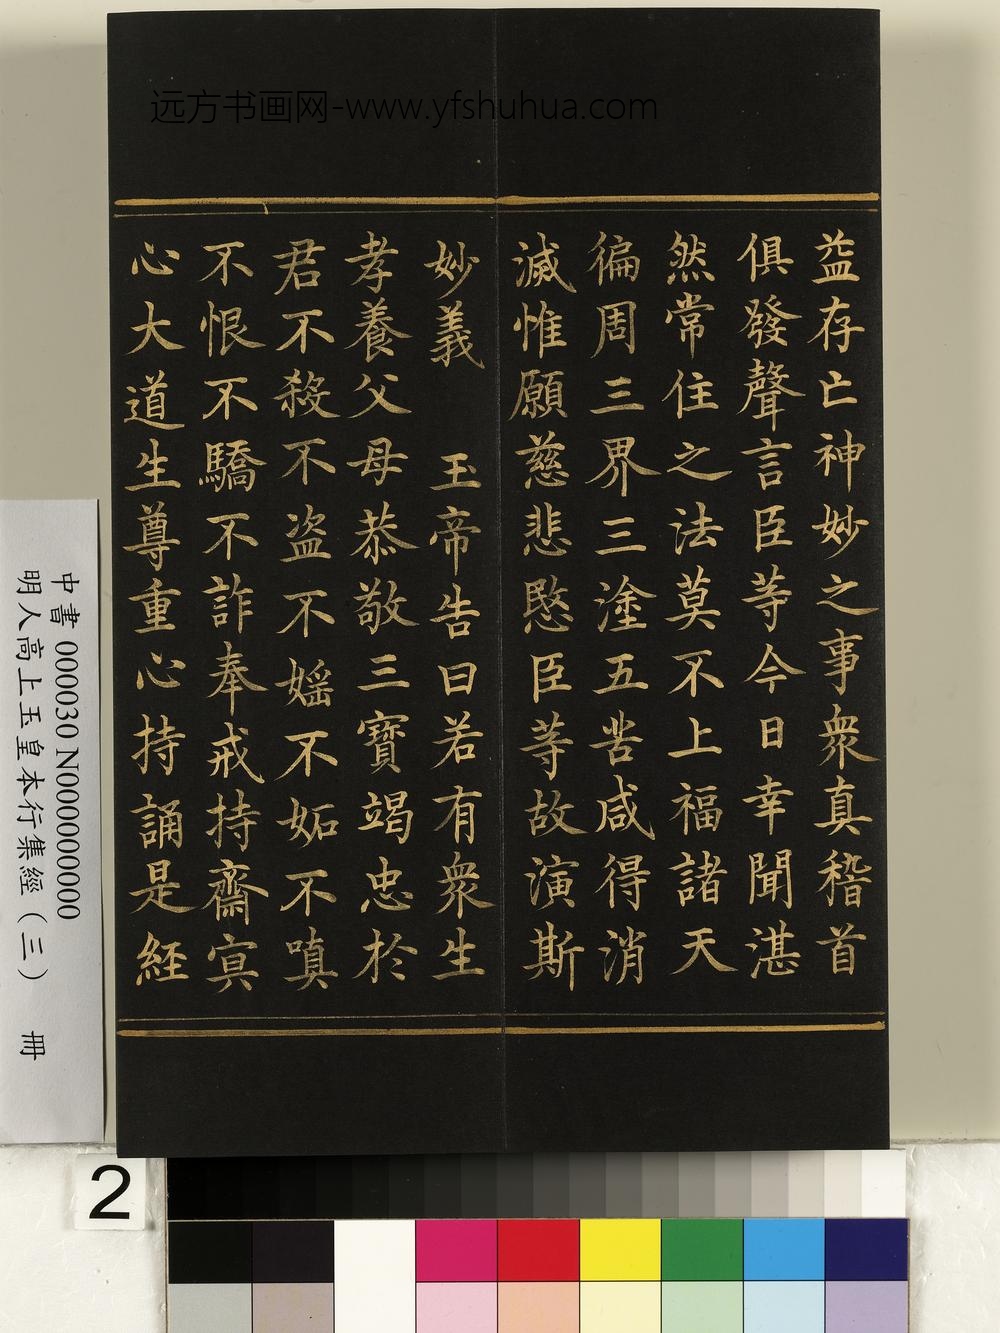 远方书画网-www.yfshuhua.com
益存亡神妙之事衆真稽首
俱發聲言臣等今日幸聞湛
然常住之法莫不上福諸天
徧周三界三塗五苦咸得消
滅惟願慈悲愍臣等故演斯
妙義　玉帝告曰若有衆生
孝養父母恭敬三寶竭忠於
君不殺不盗不婬不妬不嗔
不恨不驕不詐奉戒持齋冥
心大道生尊重心持誦是經
中書 000030 N000000000
明人高上玉皇本行集經（三） 冊
2